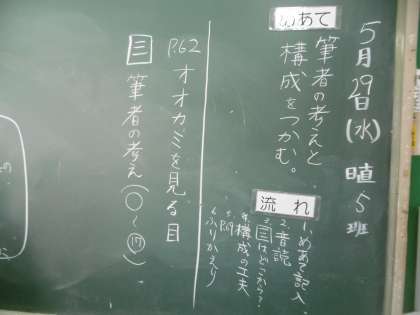 5月29日(水) 日直 5班
めあて
筆者の考えと
構成をつかむ。
流れ
1、めあて記入
2、音読
3、三はどこから?
4、構成の工夫
5、P.69
6、ふりかえり
P.62 オオカミを見る目
三 筆者の考え(〇~⑰)